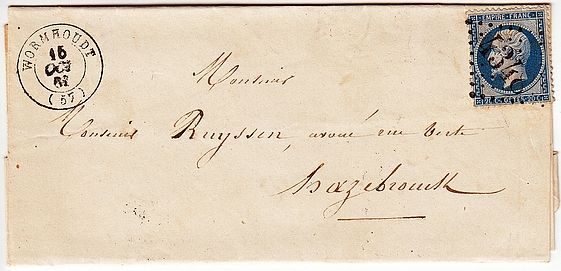 WORMHOUDT
15
OCT
(57)
EMPIRE FRANC.
Monsieur
Monsieur Ruyssen, avoué rue Verte
hazebrouck